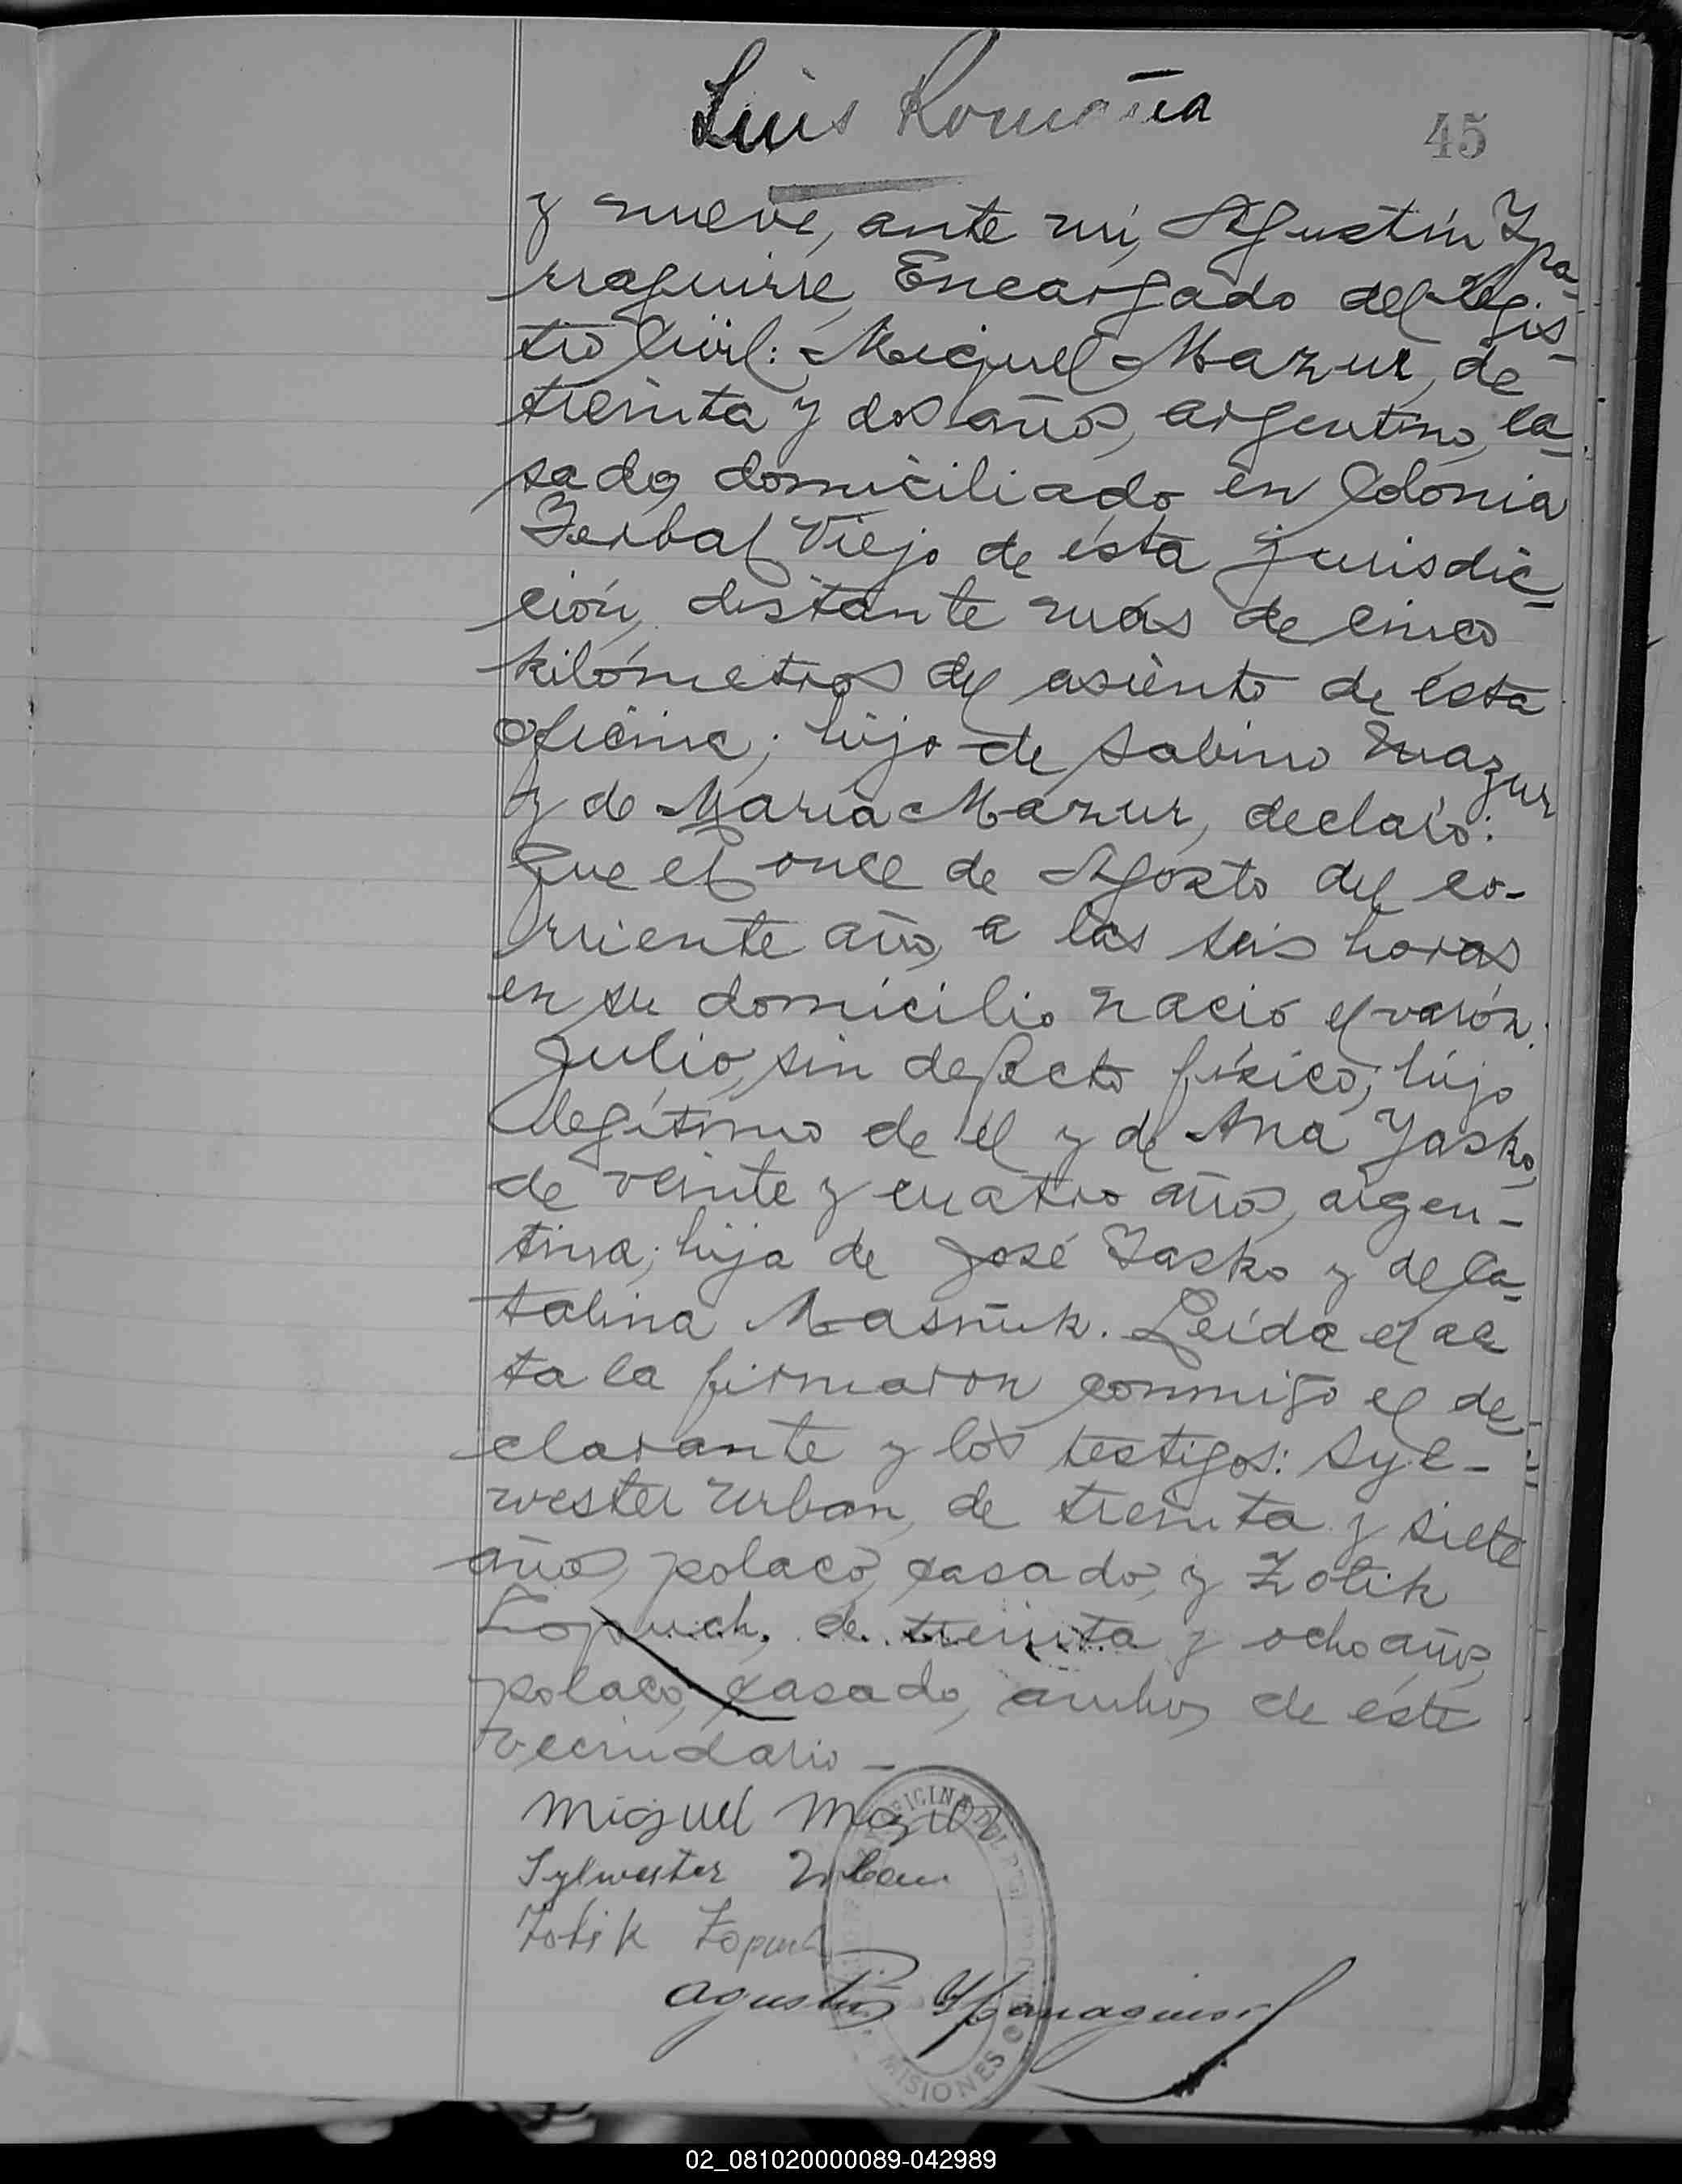 Luis Romaña
45
y nueve, ante mi, Agustín Ypa-
rraguirre, Encargado del Regis-
tro Civil: Miguel Mazur, de
treinta y dos años, argentino, ca-
sado, domiciliado en Colonia
Yerbal Viejo de ésta jurisdic-
ción, distante más de cinco
kilómetros del asiento de ésta
oficina; hijo de Sabino Mazur
y de María Mazur, declaró:
Que el once de Agosto del co-
rriente año, a las seis horas
en su domicilio nació el varón:
Julio, sin defecto físico; hijo
legítimo de él y de Ana Yasko,
de veinte y cuatro años, argen-
tina; hija de José Yasko y de Ca-
talina Masñuk. Leída el ac
ta la firmaron conmigo el de-
clarante y los testigos: Syl-
wester Urban, de treinta y siete
años, polaco, casado, y Zotik
Lopuch, de treinta y ocho años,
polaco, casado, ambos de éste
vecindario -
Miguel Mazur
Sylwester Urban
Zotik Łopuch
Agustín Yparraguirre
OFICINA DEL
MISIONES
02_081020000089-042989